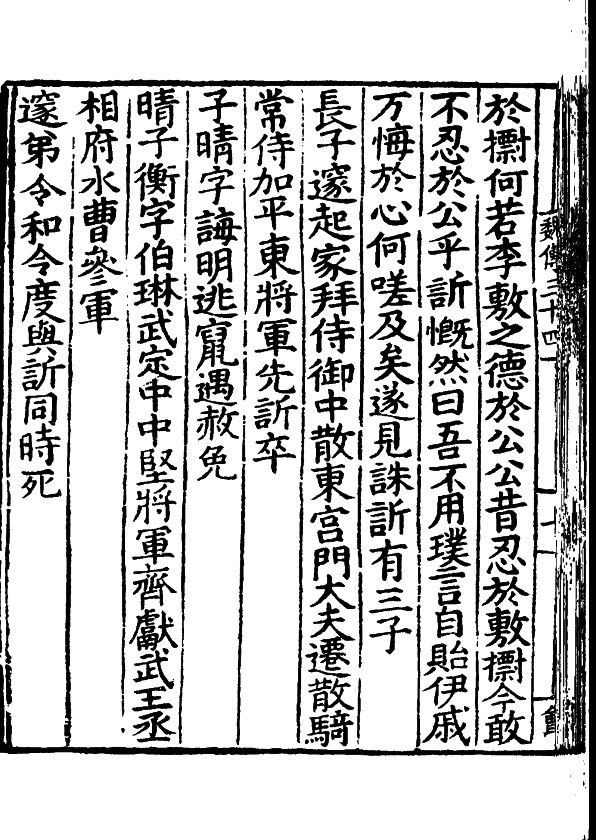 於㯹何若李敷之德於公公昔忍於敷㯹今敢
不忍於公乎訢慨然曰吾不用璞言自貽伊戚
万悔於心何嗟及矣遂見誅訢有三子
長子邃起家拜侍御中散東宮門大夫遷散騎
常侍加平東將軍先訢卒
子晴字誨明逃竄遇赦免
晴子衡字伯琳武定中中堅將軍齊獻武王丞
相府水曹參軍
邃弟令和令度與訢同時死
魏傳三十四
十一